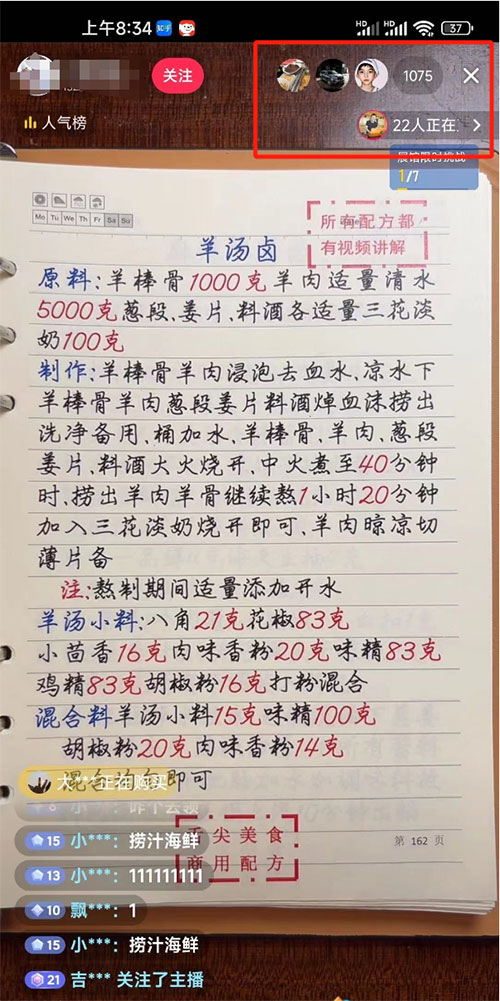 上午8:34 知乎 HD HD 37
关注 1075
人气榜 22人正在
展馆限时挑战
1/7
Mo Tu We Th Fr Sa Su
所有配方都
有视频讲解
羊汤卤
原料:羊棒骨1000克羊肉适量清水
5000克葱段、姜片、料酒各适量三花淡
奶100克
制作:羊棒骨羊肉浸泡去血水、凉水下
羊棒骨羊肉葱段姜片料酒焯血沫捞出
洗净备用、桶加水、羊棒骨、羊肉、葱段
姜片、料酒大火烧开、中火煮至40分钟
时、捞出羊肉羊骨继续熬1小时20分钟
加入三花淡奶烧开即可、羊肉晾凉切
薄片备
注:熬制期间适量添加开水
羊汤小料:八角21克花椒83克
小茴香16克肉味香粉20克味精83克
鸡精83克胡椒粉16克打粉混合
混合料羊汤小料15克味精100克
胡椒粉20克肉味香粉14克
混合均匀即可
大***正在购买
舌尖美食
商用配方
第 162 页
15 小***: 捞汁海鲜
13 小***: 111111111
10 飘***: 1
15 小***: 捞汁海鲜
21 吉*** 关注了主播